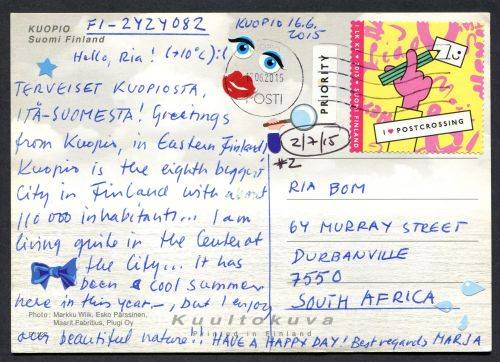 FI-2424082
KUOPIO
Suomi Finland
KUOPIO 16.6.
2015
Hello, Ria! (+10°C) :(
TERVEISET KUOPIOSTA,
ITÄ-SUOMESTA! Greetings
from Kuopio, in Eastern Finland!
Kuopio is the eighth biggest
city in Finland with about
110 000 inhabitants... I am
living quite in the Center of
the City... It has
been a cool summer
here in this year –, but I enjoy
our beautiful nature!! HAVE A HAPPY DAY! Best regards MARJA
Photo: Markku Wilk, Esko Pärssinen,
Maarit Fabritius, Plugi Oy
Kuultokuva
Printed in Finland
.06.2015
POSTI
PRIORITY
LK KL 2015 SUOMI FINLAND
I ♥ POSTCROSSING
2/7/15
#2
RIA BOM
64 MURRAY STREET
DURBANVILLE
7550
SOUTH AFRICA